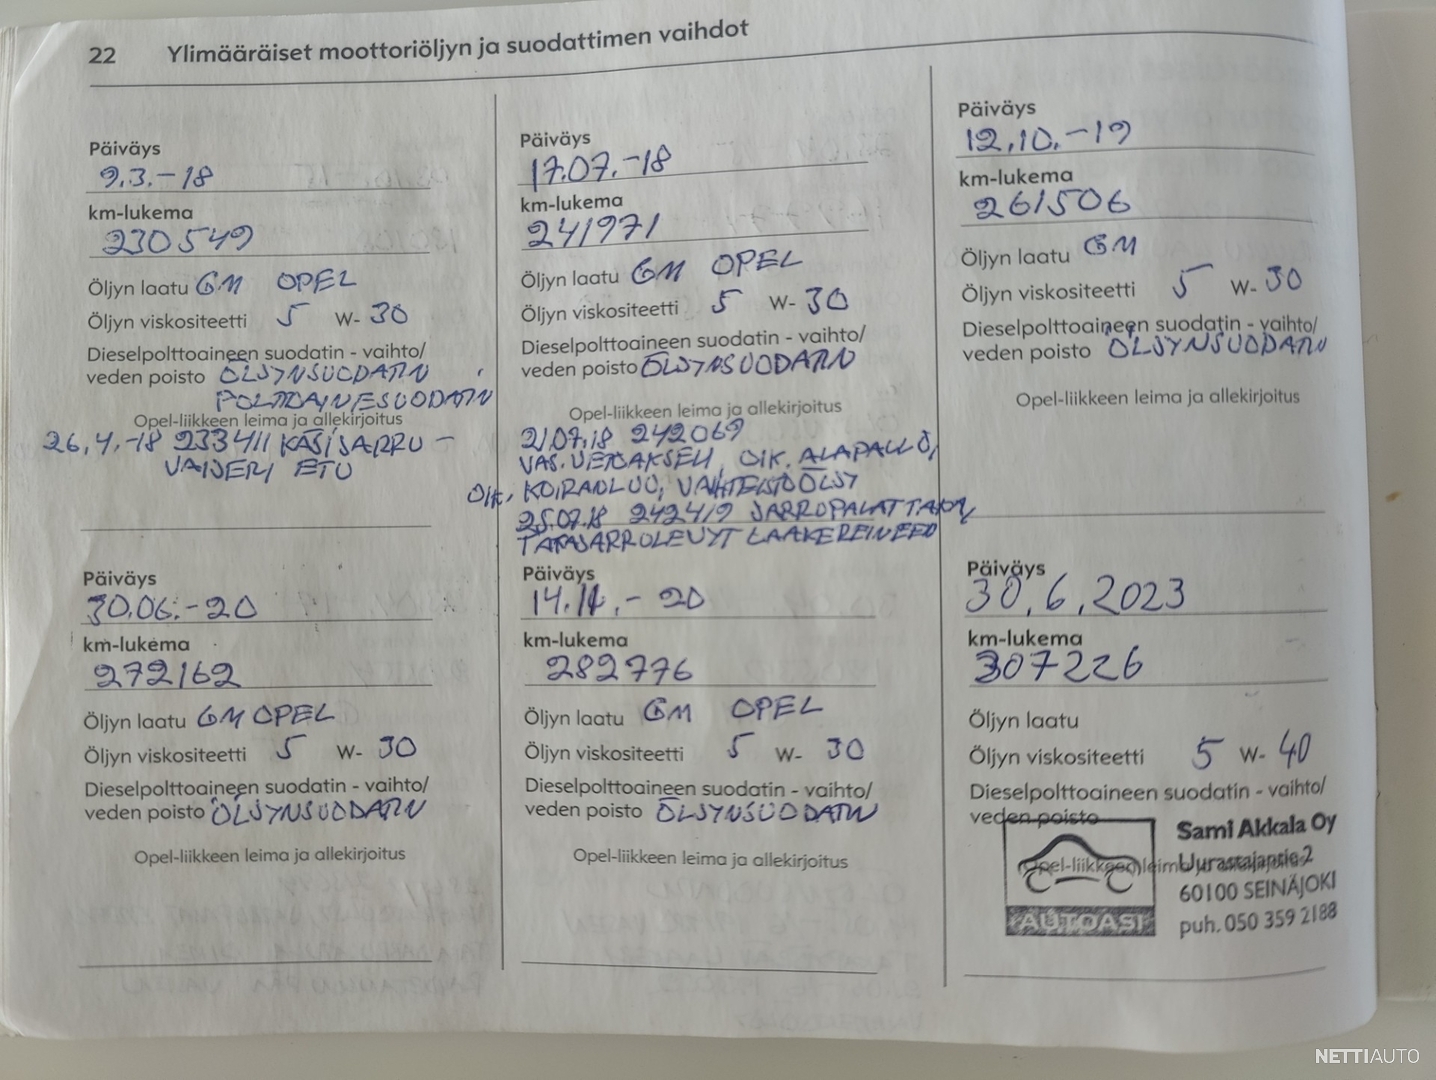 22 Ylimääräiset moottoriöljyn ja suodattimen vaihdot
Päiväys
9.3.-18
km-lukema
230549
Öljyn laatu GM OPEL
Öljyn viskositeetti 5 W- 30
Dieselpolttoaineen suodatin - vaihto/
veden poisto ÖLJYNSUODATIN
POLTTOAINESUODATIN
Opel-liikkeen leima ja allekirjoitus
26.4.-18 233411 KÄSIJARRU-
VAIJERI ETU
Päiväys
17.07.-18
km-lukema
241971
Öljyn laatu GM OPEL
Öljyn viskositeetti 5 W- 30
Dieselpolttoaineen suodatin - vaihto/
veden poisto ÖLJYNSUODATIN
Opel-liikkeen leima ja allekirjoitus
21.07.18 242069
VAS. VETOAKSELI, OIK. ALAPALLO,
OIK. KOIRANLUU, VAIHTEISTOÖLJY
25.07.18 242419 JARRUPALAT TAKA,
TAKAJARRULEVYT LAAKEREINEEN
Päiväys
12.10.-19
km-lukema
261506
Öljyn laatu GM
Öljyn viskositeetti 5 W- 30
Dieselpolttoaineen suodatin - vaihto/
veden poisto ÖLJYNSUODATIN
Opel-liikkeen leima ja allekirjoitus
Päiväys
30.06.-20
km-lukema
272162
Öljyn laatu GM OPEL
Öljyn viskositeetti 5 W- 30
Dieselpolttoaineen suodatin - vaihto/
veden poisto ÖLJYNSUODATIN
Opel-liikkeen leima ja allekirjoitus
Päiväys
14.11.-20
km-lukema
282776
Öljyn laatu GM OPEL
Öljyn viskositeetti 5 W- 30
Dieselpolttoaineen suodatin - vaihto/
veden poisto ÖLJYNSUODATIN
Opel-liikkeen leima ja allekirjoitus
Päiväys
30.6.2023
km-lukema
307226
Öljyn laatu
Öljyn viskositeetti 5 W- 40
Dieselpolttoaineen suodatin - vaihto/
veden poisto
Opel-liikkeen leima ja allekirjoitus
AUTOASI
Sami Akkala Oy
Uurastajantie 2
60100 SEINÄJOKI
puh. 050 359 2188
NETTIAUTO